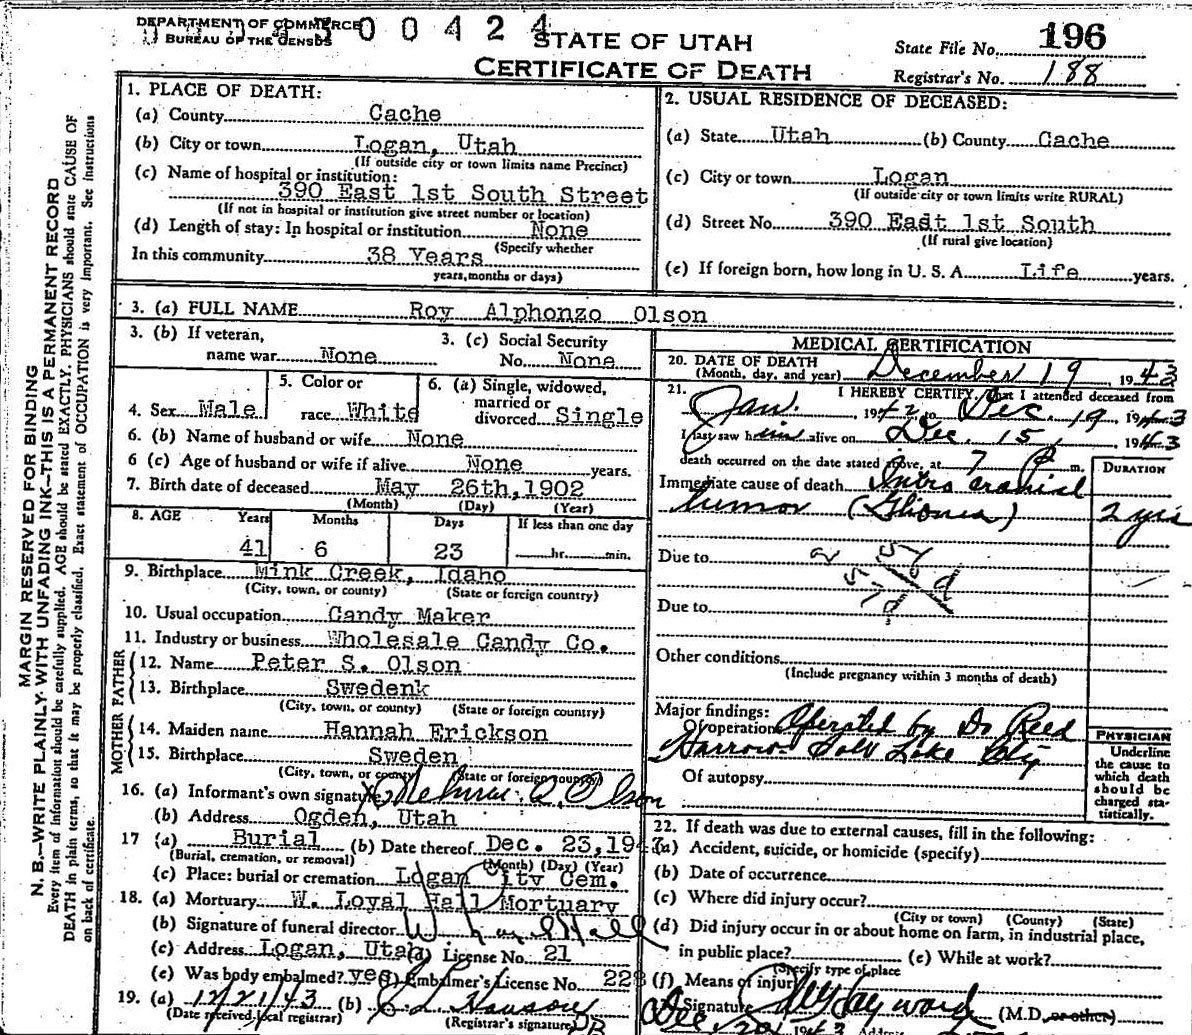 DEPARTMENT OF COMMERCE
BUREAU OF THE CENSUS
0 0 4 2 4
STATE OF UTAH
CERTIFICATE OF DEATH
State File No. 196
Registrar's No. 188
MARGIN RESERVED FOR BINDING
N. B.—WRITE PLAINLY WITH UNFADING INK—THIS IS A PERMANENT RECORD
Every item of information should be carefully supplied. AGE should be stated EXACTLY. PHYSICIANS should state CAUSE OF
DEATH in plain terms, so that it may be properly classified. Exact statement of OCCUPATION is very important. See Instructions
on back of certificate.
1. PLACE OF DEATH:
(a) County Cache
(b) City or town Logan, Utah
(If outside city or town limits name Precinct)
(c) Name of hospital or institution:
390 East 1st South Street
(If not in hospital or institution give street number or location)
(d) Length of stay: In hospital or institution None
(Specify whether
In this community 38 Years
years, months or days)
2. USUAL RESIDENCE OF DECEASED:
(a) State Utah (b) County Cache
(c) City or town Logan
(If outside city or town limits write RURAL)
(d) Street No. 390 East 1st South
(If rural give location)
(e) If foreign born, how long in U. S. A. Life years.
3. (a) FULL NAME Roy Alphonzo Olson
3. (b) If veteran,
name war None
3. (c) Social Security
No. None
4. Sex Male
5. Color or
race White
6. (a) Single, widowed,
married or
divorced Single
6. (b) Name of husband or wife None
6 (c) Age of husband or wife if alive None years.
7. Birth date of deceased May 26th, 1902
(Month) (Day) (Year)
8. AGE Years Months Days If less than one day
41 6 23 hr. min.
9. Birthplace Mink Creek, Idaho
(City, town, or county) (State or foreign country)
10. Usual occupation Candy Maker
11. Industry or business Wholesale Candy Co.
FATHER
12. Name Peter S. Olson
13. Birthplace Swedenk
(City, town, or county) (State or foreign country)
MOTHER
14. Maiden name Hannah Erickson
15. Birthplace Sweden
(City, town, or county) (State or foreign country)
16. (a) Informant's own signature Olson
(b) Address Ogden, Utah
17 (a) Burial (b) Date thereof Dec. 23, 194
(Burial, cremation, or removal) (Month) (Day) (Year)
(c) Place: burial or cremation Logan City Cem.
18. (a) Mortuary W. Loyal Hall Mortuary
(b) Signature of funeral director W. Loyal Hall
(c) Address Logan, Utah (d) License No. 21
(e) Was body embalmed? yes (f) Embalmer's License No. 228
19. (a) 12/21/43 (b)
(Date received local registrar) (Registrar's signature)
MEDICAL CERTIFICATION
20. DATE OF DEATH
(Month, day, and year) December 19, 1943
21. I HEREBY CERTIFY, that I attended deceased from
Jan. , 1942 to Dec. 19 1943
I last saw him alive on Dec. 15, 1943
death occurred on the date stated above, at 7 P m.
DURATION
Immediate cause of death Intra cranial
tumor (Glioma) 2 yrs
Due to
Due to
Other conditions
(Include pregnancy within 3 months of death)
Major findings:
Of operation Operated by Dr Reed
Harrow Salt Lake City
Of autopsy
PHYSICIAN
Underline
the cause to
which death
should be
charged sta-
tistically.
22. If death was due to external causes, fill in the following:
(a) Accident, suicide, or homicide (specify)
(b) Date of occurrence
(c) Where did injury occur?
(City or town) (County) (State)
(d) Did injury occur in or about home on farm, in industrial place,
in public place? (e) While at work?
(Specify type of place
(f) Means of injury
Signature Hayward (M.D. or other)
Dec. 20, 1943 Address